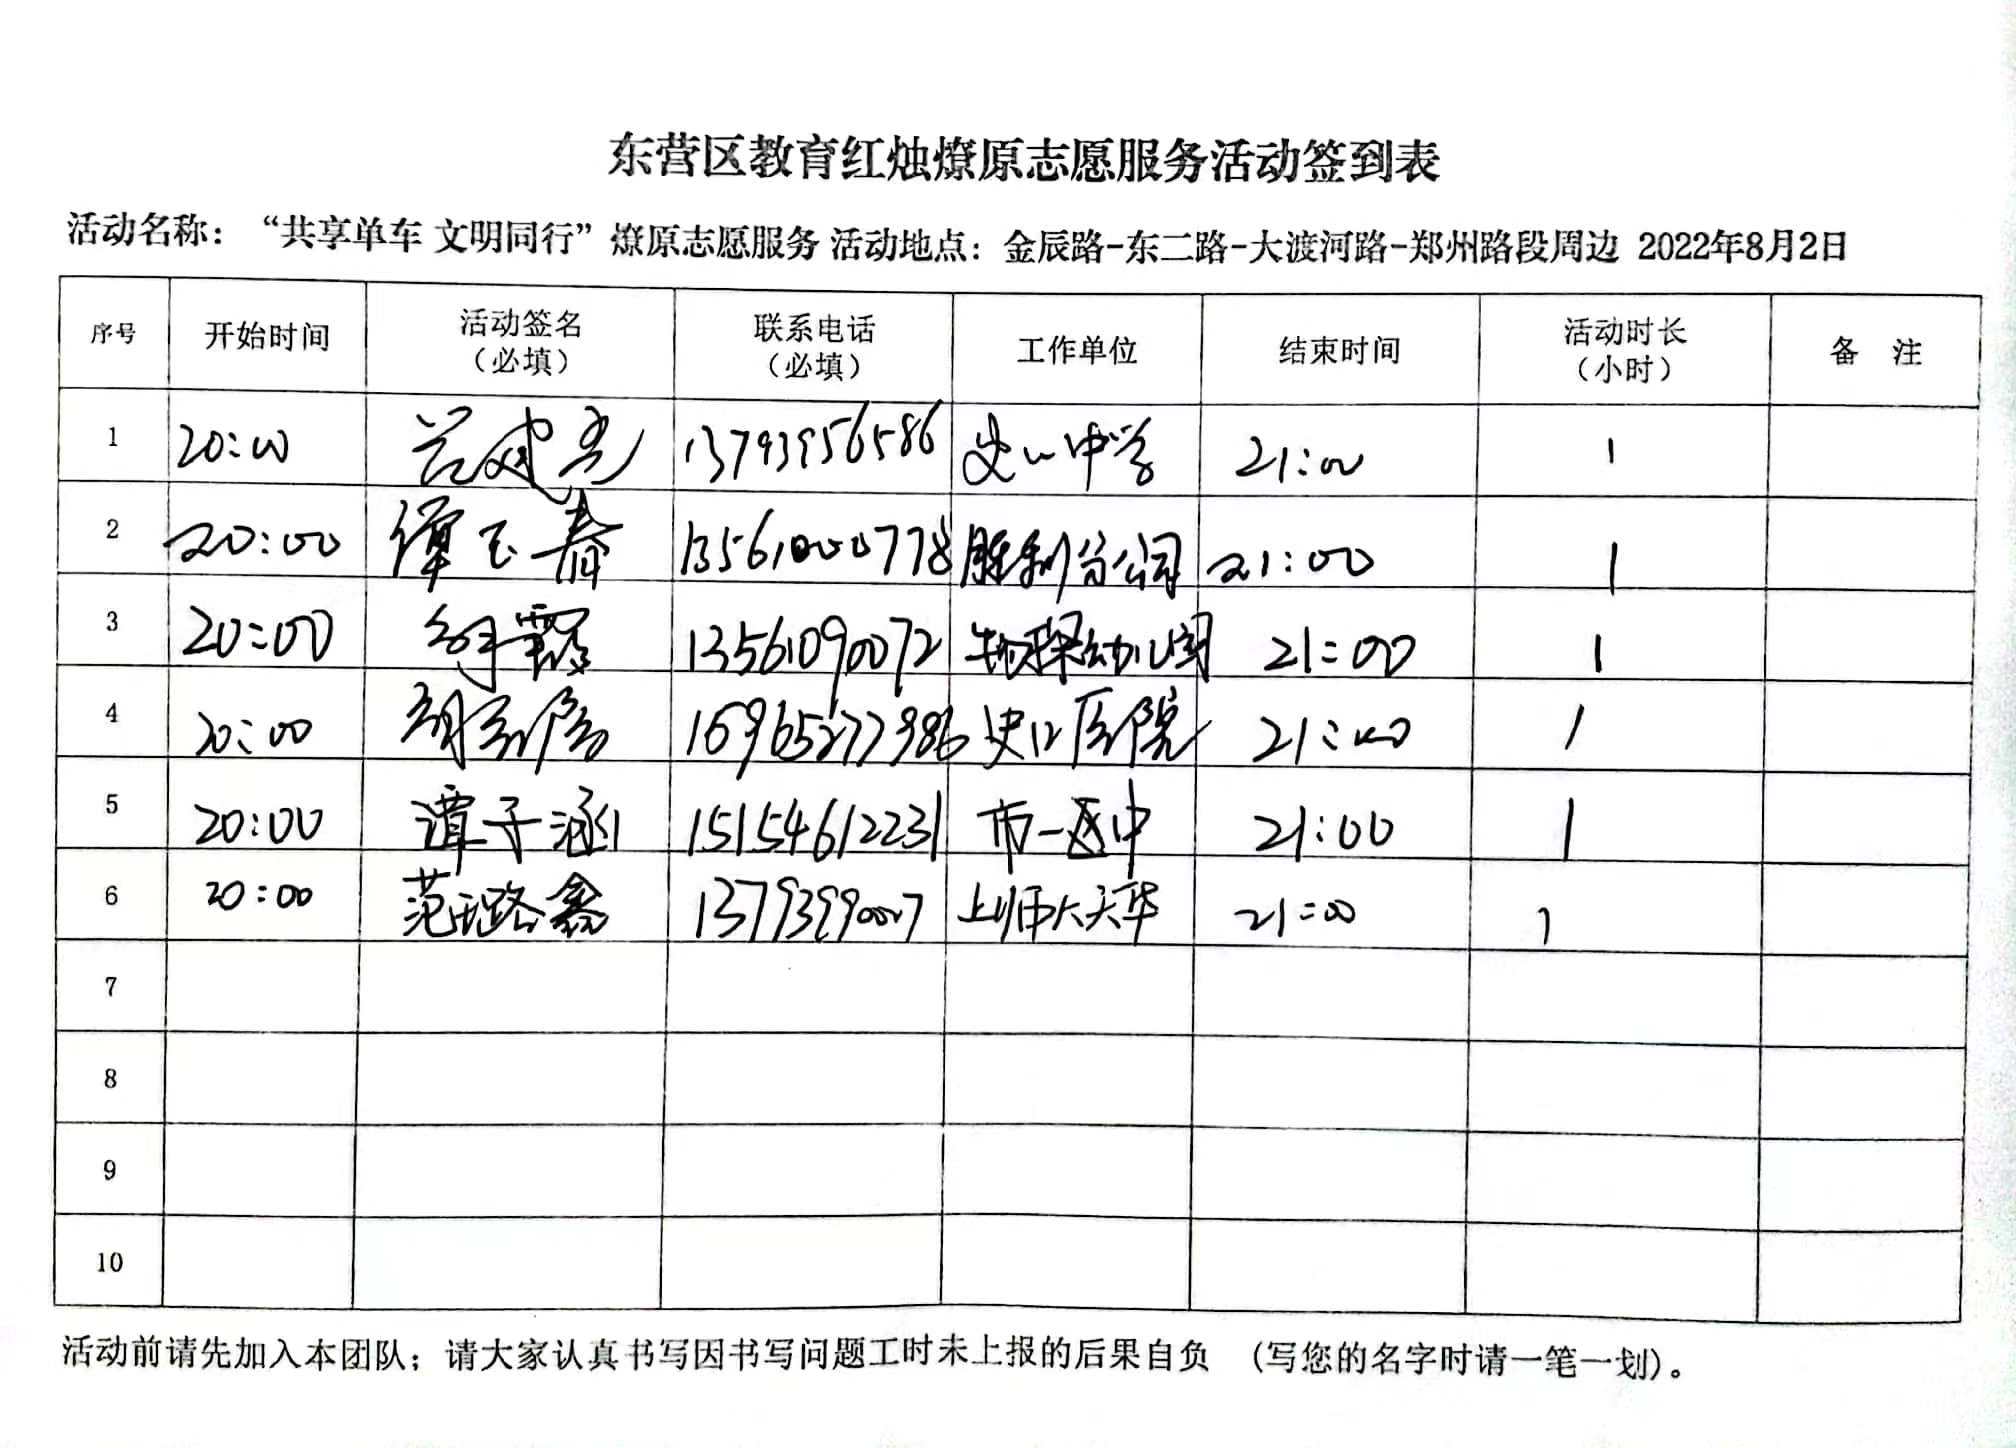 东营区教育红烛燎原志愿服务活动签到表
活动名称：“共享单车 文明同行”燎原志愿服务 活动地点：金辰路-东二路-大渡河路-郑州路段周边 2022年8月2日
序号 开始时间 活动签名（必填） 联系电话（必填） 工作单位 结束时间 活动时长（小时） 备 注
1 20:00 13793956586 中学 21:00 1
2 20:00 谭玉春 13561000778 胜利分公司 21:00 1
3 20:00 13561090072 物探幼儿园 21:00 1
4 20:00 史口医院 21:00 1
5 20:00 谭子涵 15154612231 市一中 21:00 1
6 20:00 范璐鑫 13793990007 上师大天华 21:00 1
7
8
9
10
活动前请先加入本团队；请大家认真书写因书写问题工时未上报的后果自负 （写您的名字时请一笔一划）。